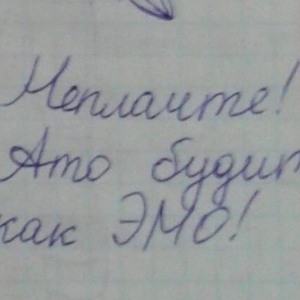 Неплачте!
Ато будит
как ЭМО!